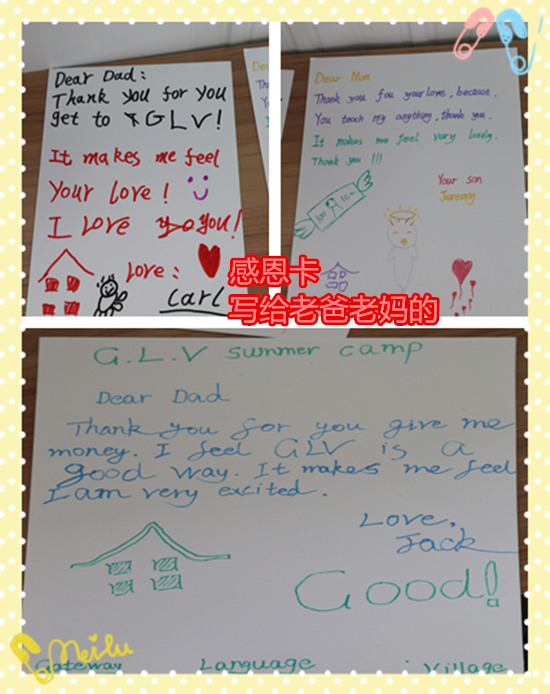 Dear Dad:
Thank you for you
get to GLV!
It makes me feel
Your love!
I Love you!
Love:
Carl
Dear Mom
Thank you fou your love, because.
You teach my anything, thank you.
It makes me feel very lovely.
Thank you !!!
Your son
100
感恩卡
写给老爸老妈的
G.L.V summer camp
Dear Dad
Thank you for you give me
money. I feel GLV is a
good way. It makes me feel
I am very excited.
Love,
Jack
Good!
Meilu
Gateway Language Village